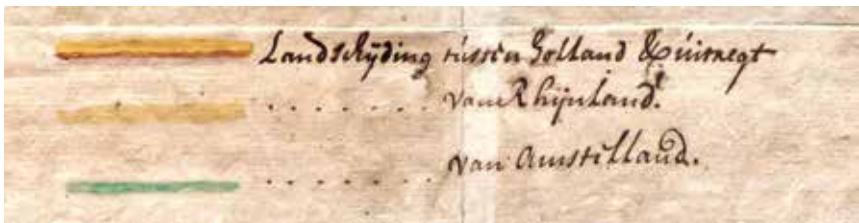 Landschÿding tússen Holland & Uitregt
. . . . . . . van Rhijnland.
. . . . . . . van Amstelland.